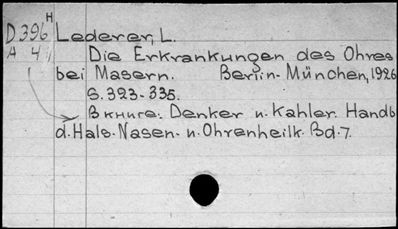 H
D 396 Lederer, L.
A 4 Die Erkrankungen des Ohres
bei Masern. Berlin-München, 1926
S. 323-335.
В книге: Denker u. Kahler. Handb
d. Hals-Nasen- u. Ohrenheilk. Bd. 7.